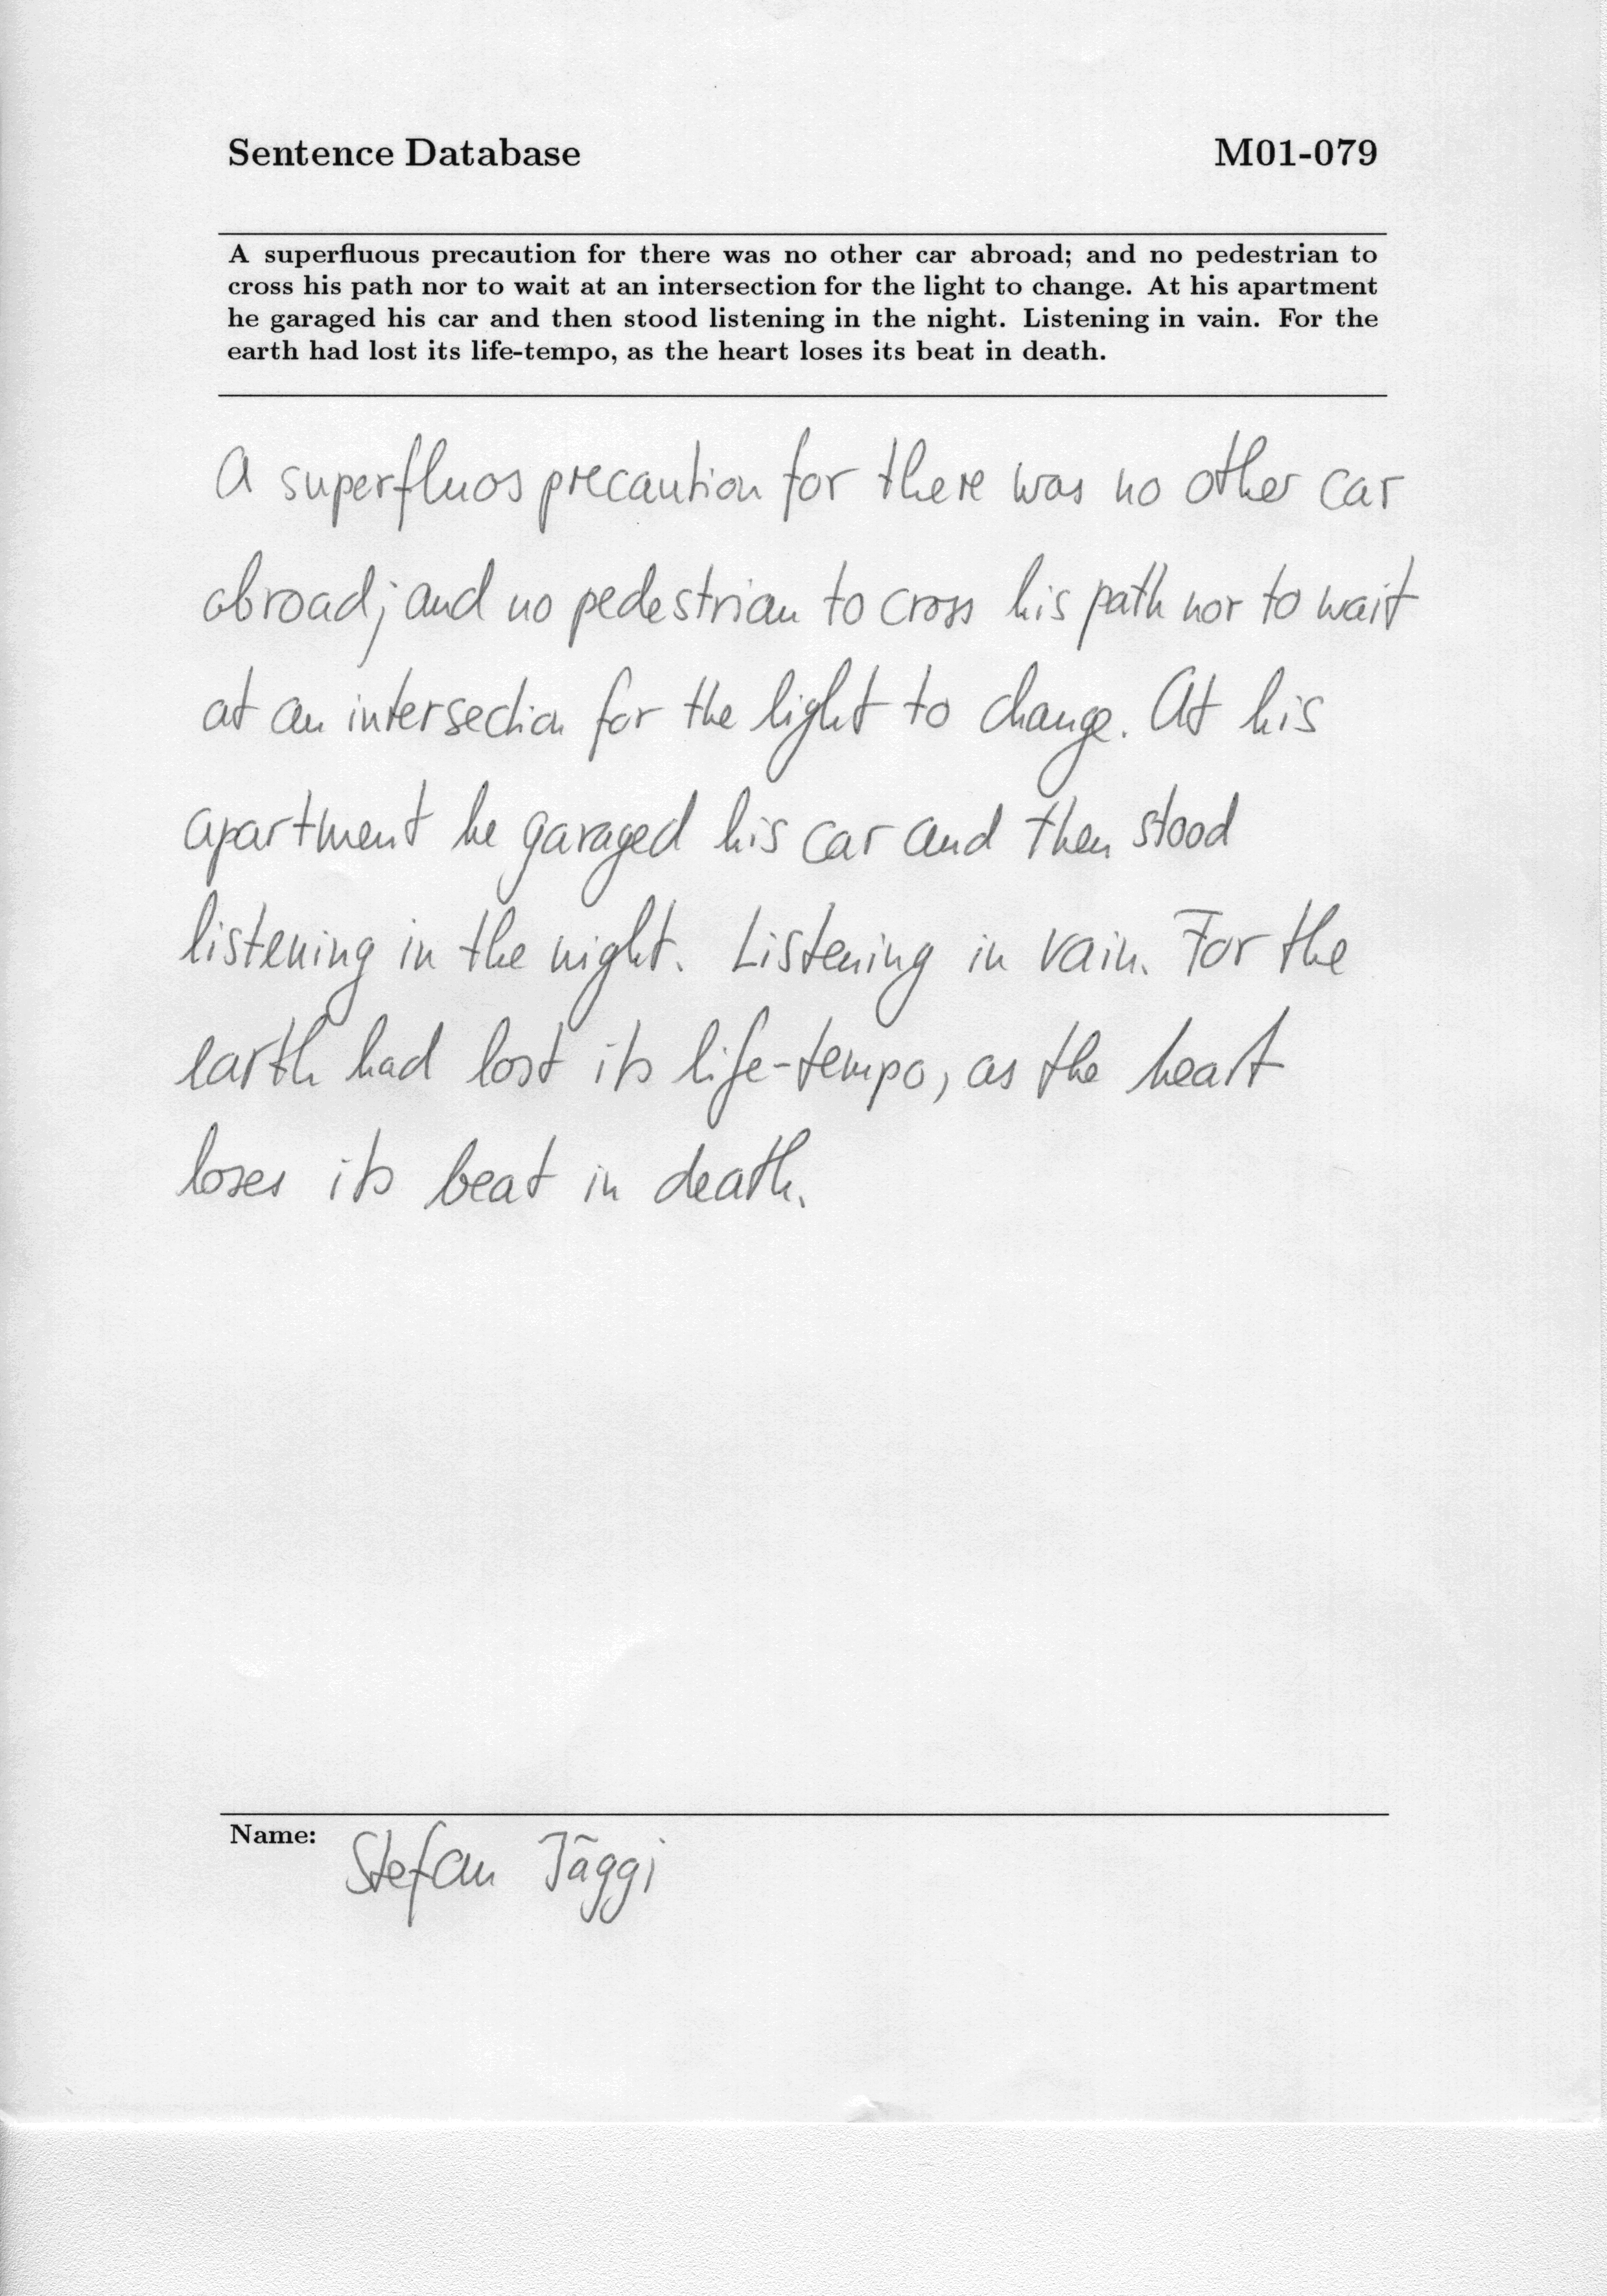 Sentence Database M01-079
A superfluous precaution for there was no other car abroad; and no pedestrian to
cross his path nor to wait at an intersection for the light to change. At his apartment
he garaged his car and then stood listening in the night. Listening in vain. For the
earth had lost its life-tempo, as the heart loses its beat in death.
A superfluos precaution for there was no other car
abroad; and no pedestrian to cross his path nor to wait
at an intersection for the light to change. At his
apartment he garaged his car and then stood
listening in the night. Listening in vain. For the
earth had lost its life-tempo, as the heart
loses its beat in death.
Name: Stefan Jäggi